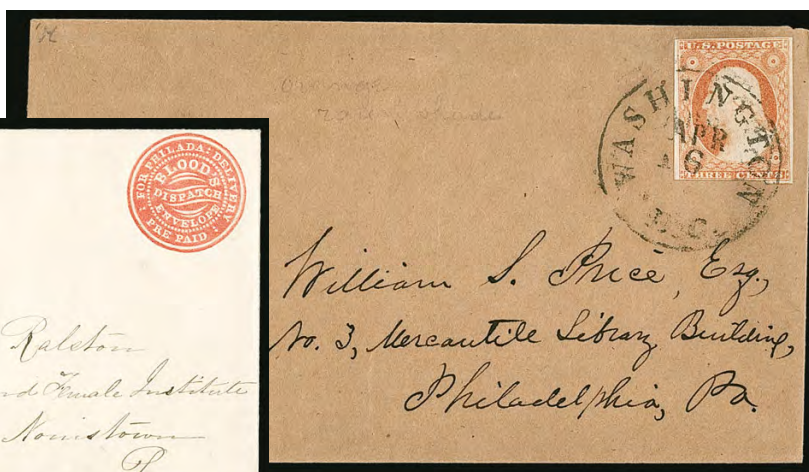 U.S. POSTAGE
THREE CENTS
WASHINGTON
D.C.
APR
6
William S. Price, Esq.,
No. 3, Mercantile Library Building,
Philadelphia, Pa.
FOR PHILADA: DELIVERY
PRE PAID
BLOOD'S
DISPATCH
ENVELOPE
Ralston
nd Female Institute
Norristown
P